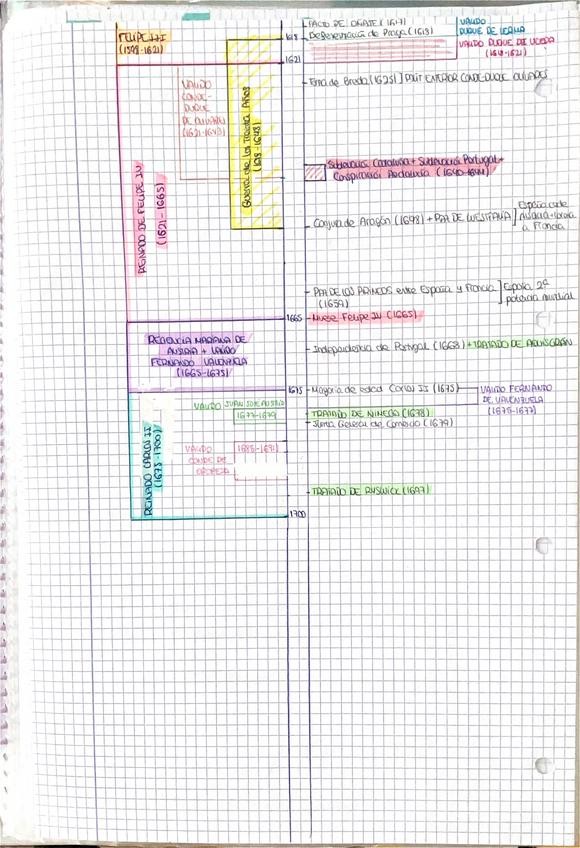 FELIPE III
(1598-1621)
PACTO DE OÑATE (1617)
1618
Defenestración de Praga (1618)
VALIDO
DUQUE DE LERMA
VALIDO DUQUE DE UCEDA
(1618-1621)
1621
VALIDO
CONDE-
DUQUE
DE OLIVARES
(1621-1643)
Guerra de los Treinta Años
(1618-1648)
Toma de Breda (1625)] POLIT EXTERIOR CONDE-DUQUE OLIVARES
REINADO DE FELIPE IV
(1621-1665)
Sublevación Cataluña + Sublevación Portugal +
Conspiración Andalucía (1640-1641)
Conjura de Aragón (1648) + PAZ DE WESTFALIA]
España cede
a Francia
PAZ DE LOS PIRINEOS entre España y Francia] España 2ª
(1659)
potencia mundial
1665
Muere Felipe IV (1665)
REGENCIA MARIANA DE
AUSTRIA + VALIDO
FERNANDO VALENZUELA
(1665-1675)
Independencia de Portugal (1668) + TRATADO DE AQUISGRÁN
1675
Mayoría de edad Carlos II (1675)
VALIDO FERNANDO
DE VALENZUELA
(1675-1677)
REINADO CARLOS II
(1675-1700)
VALIDO JUAN JOSE AUSTRIA
1677-1679
TRATADO DE NIMEGA (1678)
Junta General de Comercio (1679)
VALIDO
CONDE DE
OROPESA
1685-1691
TRATADO DE RYSWICK (1697)
1700